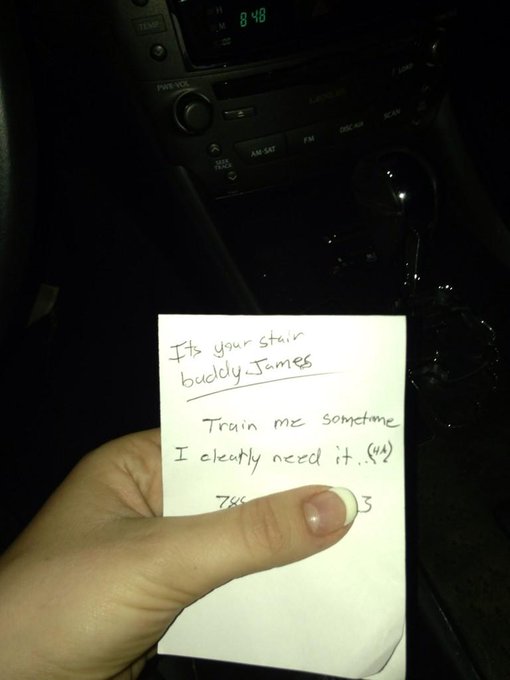 H
M
8:48
TEMP
PWR·VOL
LOAD
AM·SAT
FM
DISC·AUX
SCAN
SEEK
TRACK
Its your stair
buddy James
Train me sometime
I cleatly need it.. (4A)
788
3